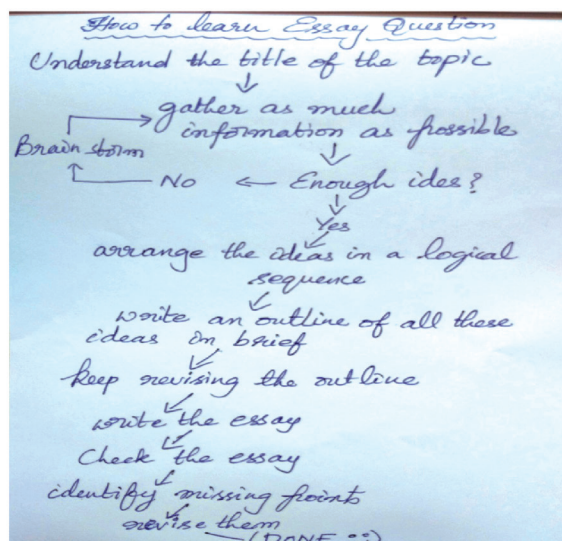 How to learn Essay Question
Understand the title of the topic
gather as much
information as possible
Brain storm
No
Enough ides?
Yes
arrange the ideas in a logical
sequence
write an outline of all these
ideas in brief
keep revising the outline
write the essay
Check the essay
identify missing points
revise them
(DONE